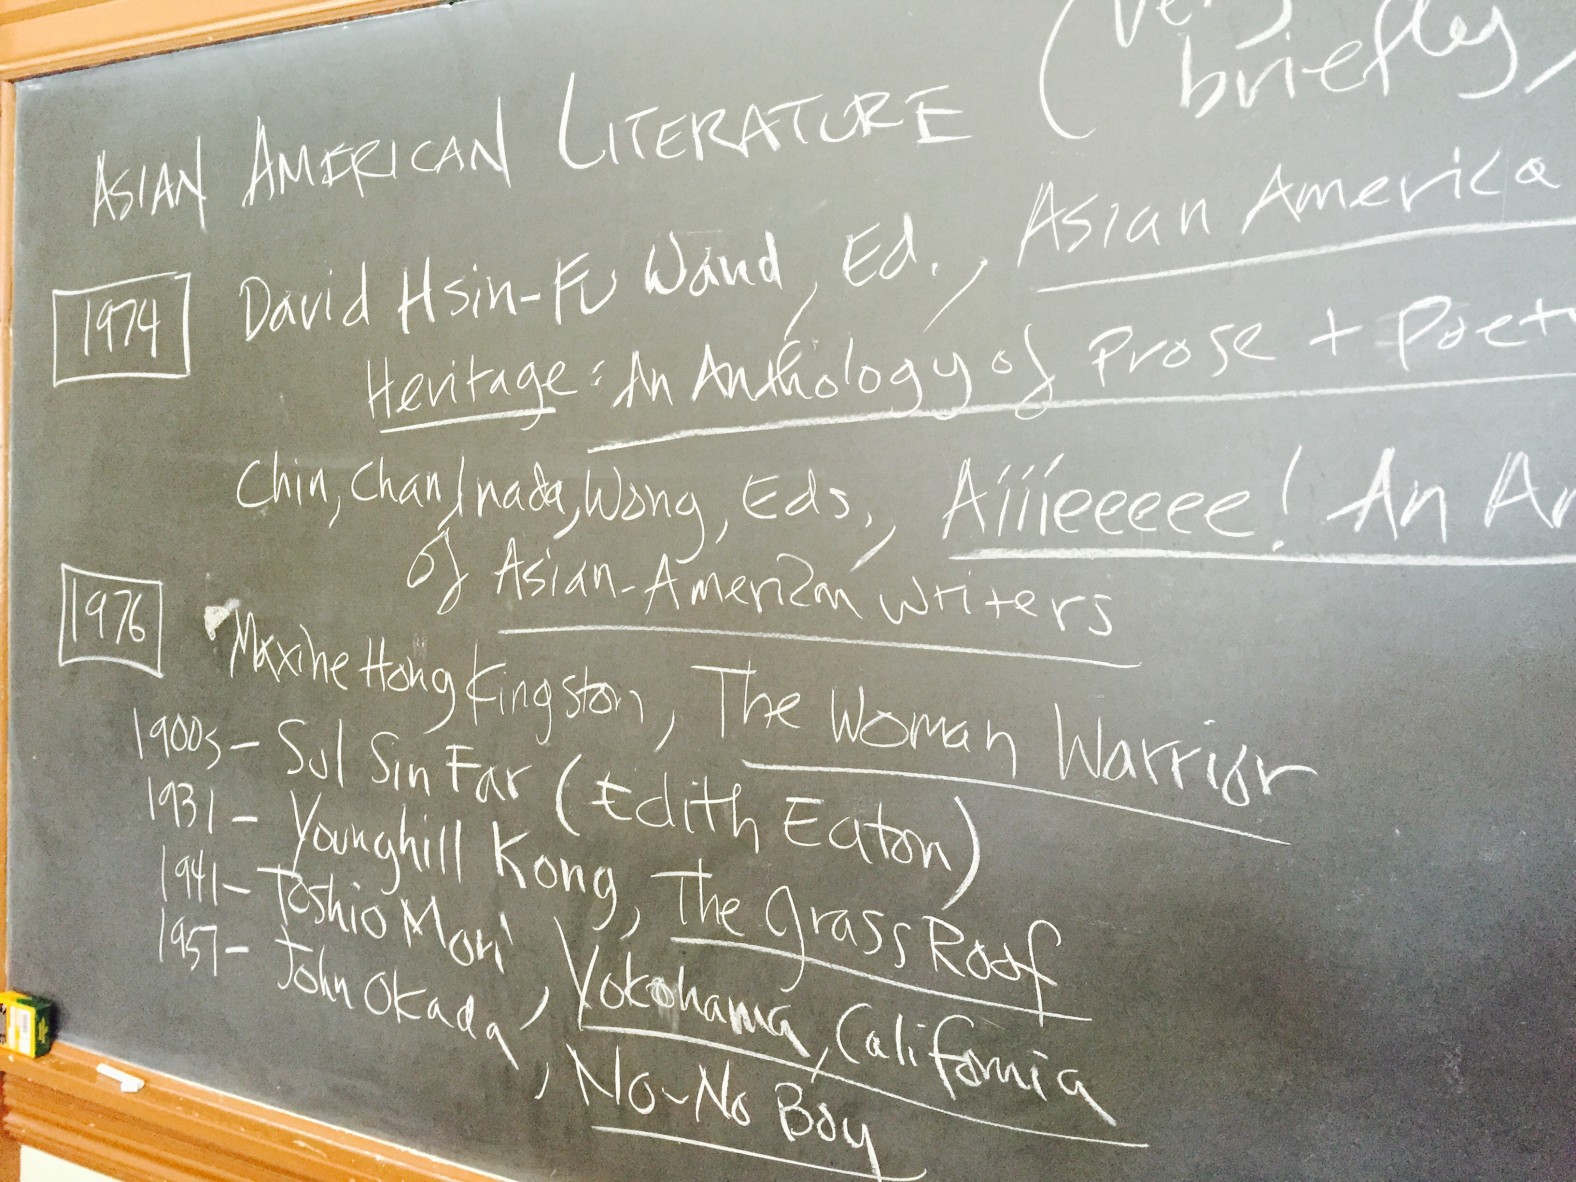 ASIAN AMERICAN LITERATURE (Very
briefly)
1974 David Hsin-Fu Wand, Ed., Asian America
Heritage: An Anthology of Prose + Poet
Chin, Chan, Inada, Wong, Eds., Aiiieeeee! An An
of Asian-American writers
1976 Maxine Hong Kingston, The Woman Warrior
1900s - Sui Sin Far (Edith Eaton)
1931 - Younghill Kong, The Grass Roof
1941 - Toshio Mori, Yokohama, California
1957 - John Okada, No-No Boy